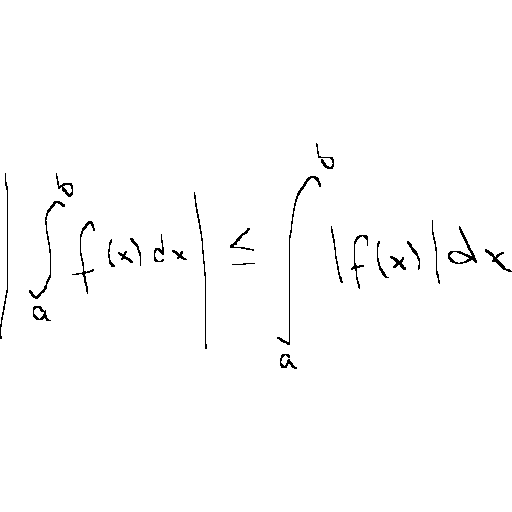 |∫_a^b f(x)dx| ≤ ∫_a^b |f(x)|dx